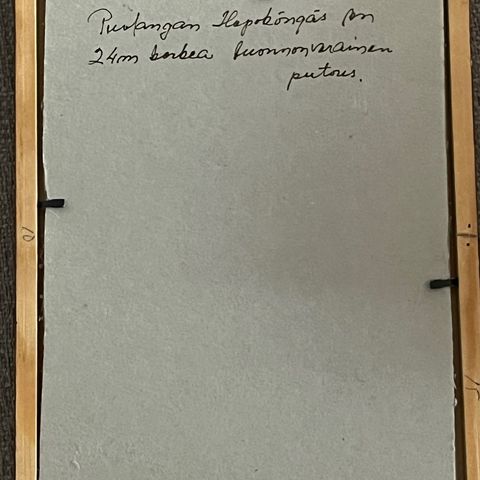 Puolangan Hepoköngäs on
24m korkea luonnonvarainen
putous.